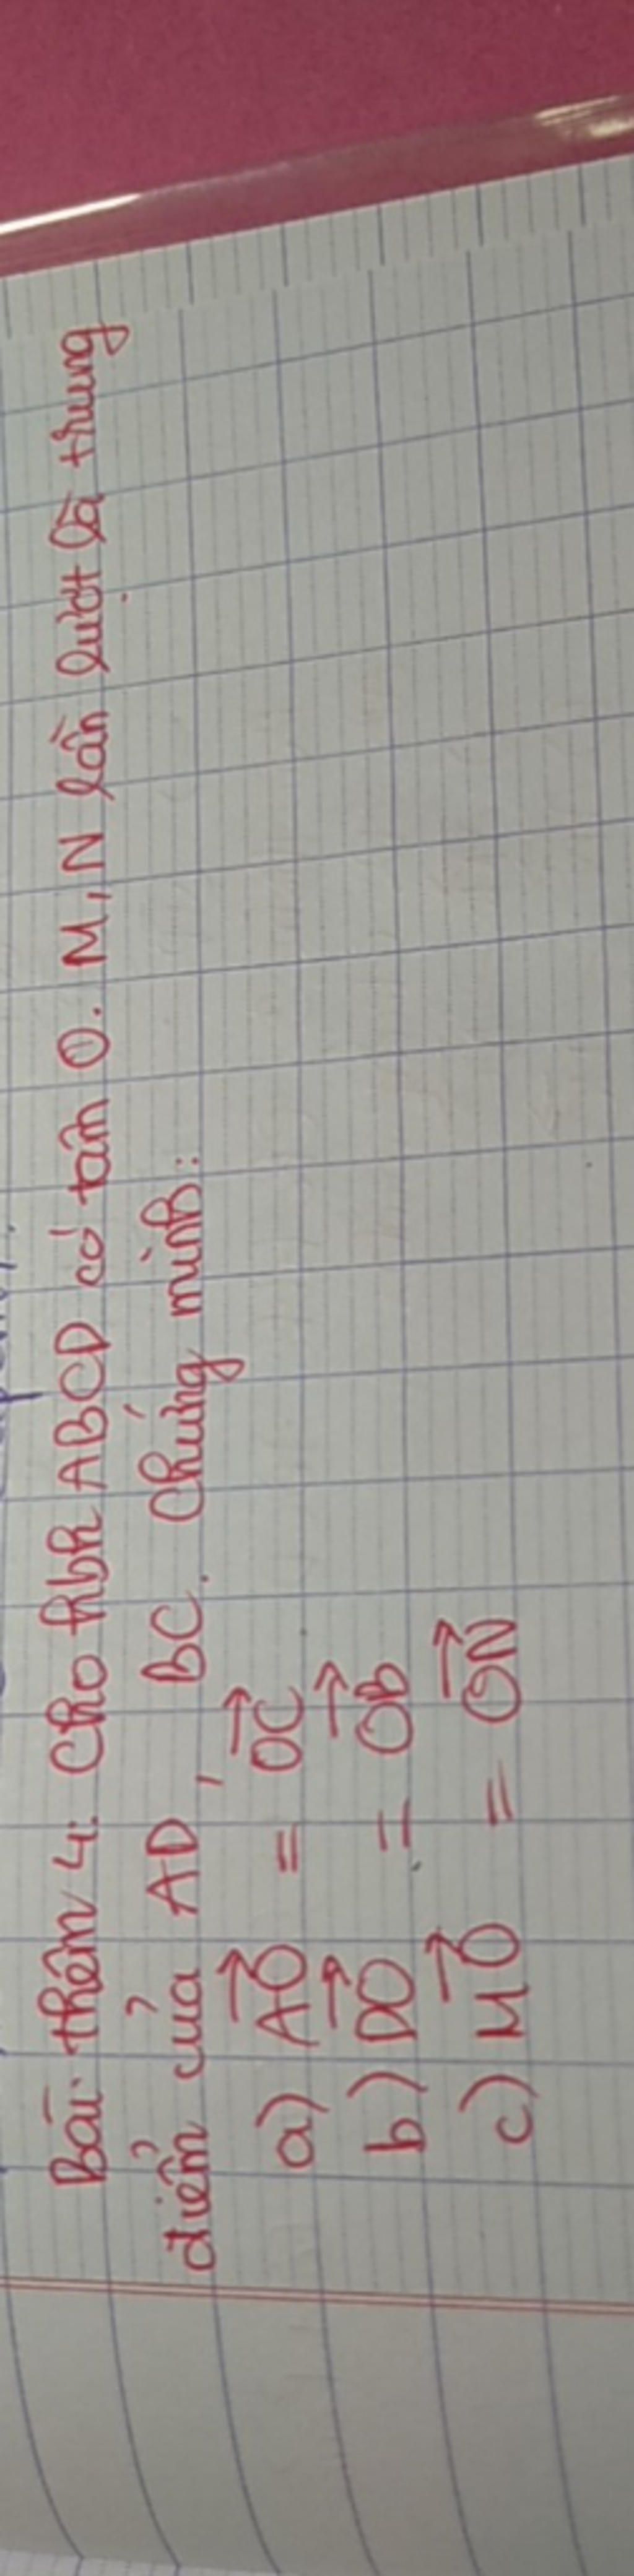 Bài thêm 4: Cho hbh ABCD có tâm O. M, N lần lượt là trung
điểm của AD, BC. Chứng minh:
a) \overrightarrow{AO} = \overrightarrow{OC}
b) \overrightarrow{DO} = \overrightarrow{OB}
c) \overrightarrow{MO} = \overrightarrow{ON}